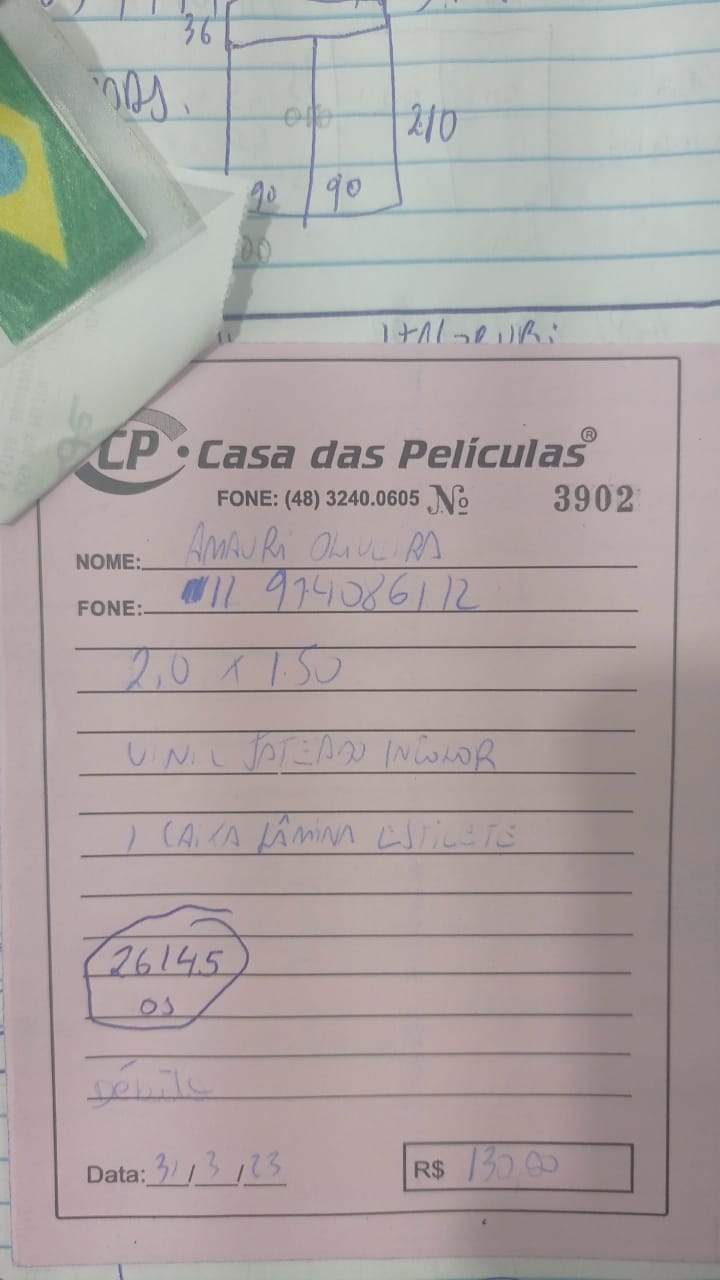 36
210
90 90
CP • Casa das Películas®
FONE: (48) 3240.0605 Nº 3902
NOME: AMAURI OLIVEIRA
FONE: 11 974086112
2,0 x 1.50
VINIL JATEADO INCOLOR
1 CAIXA LÂMINA ESTILETE
26145
OS
Débito
Data: 31/3/23 R$ 130,00